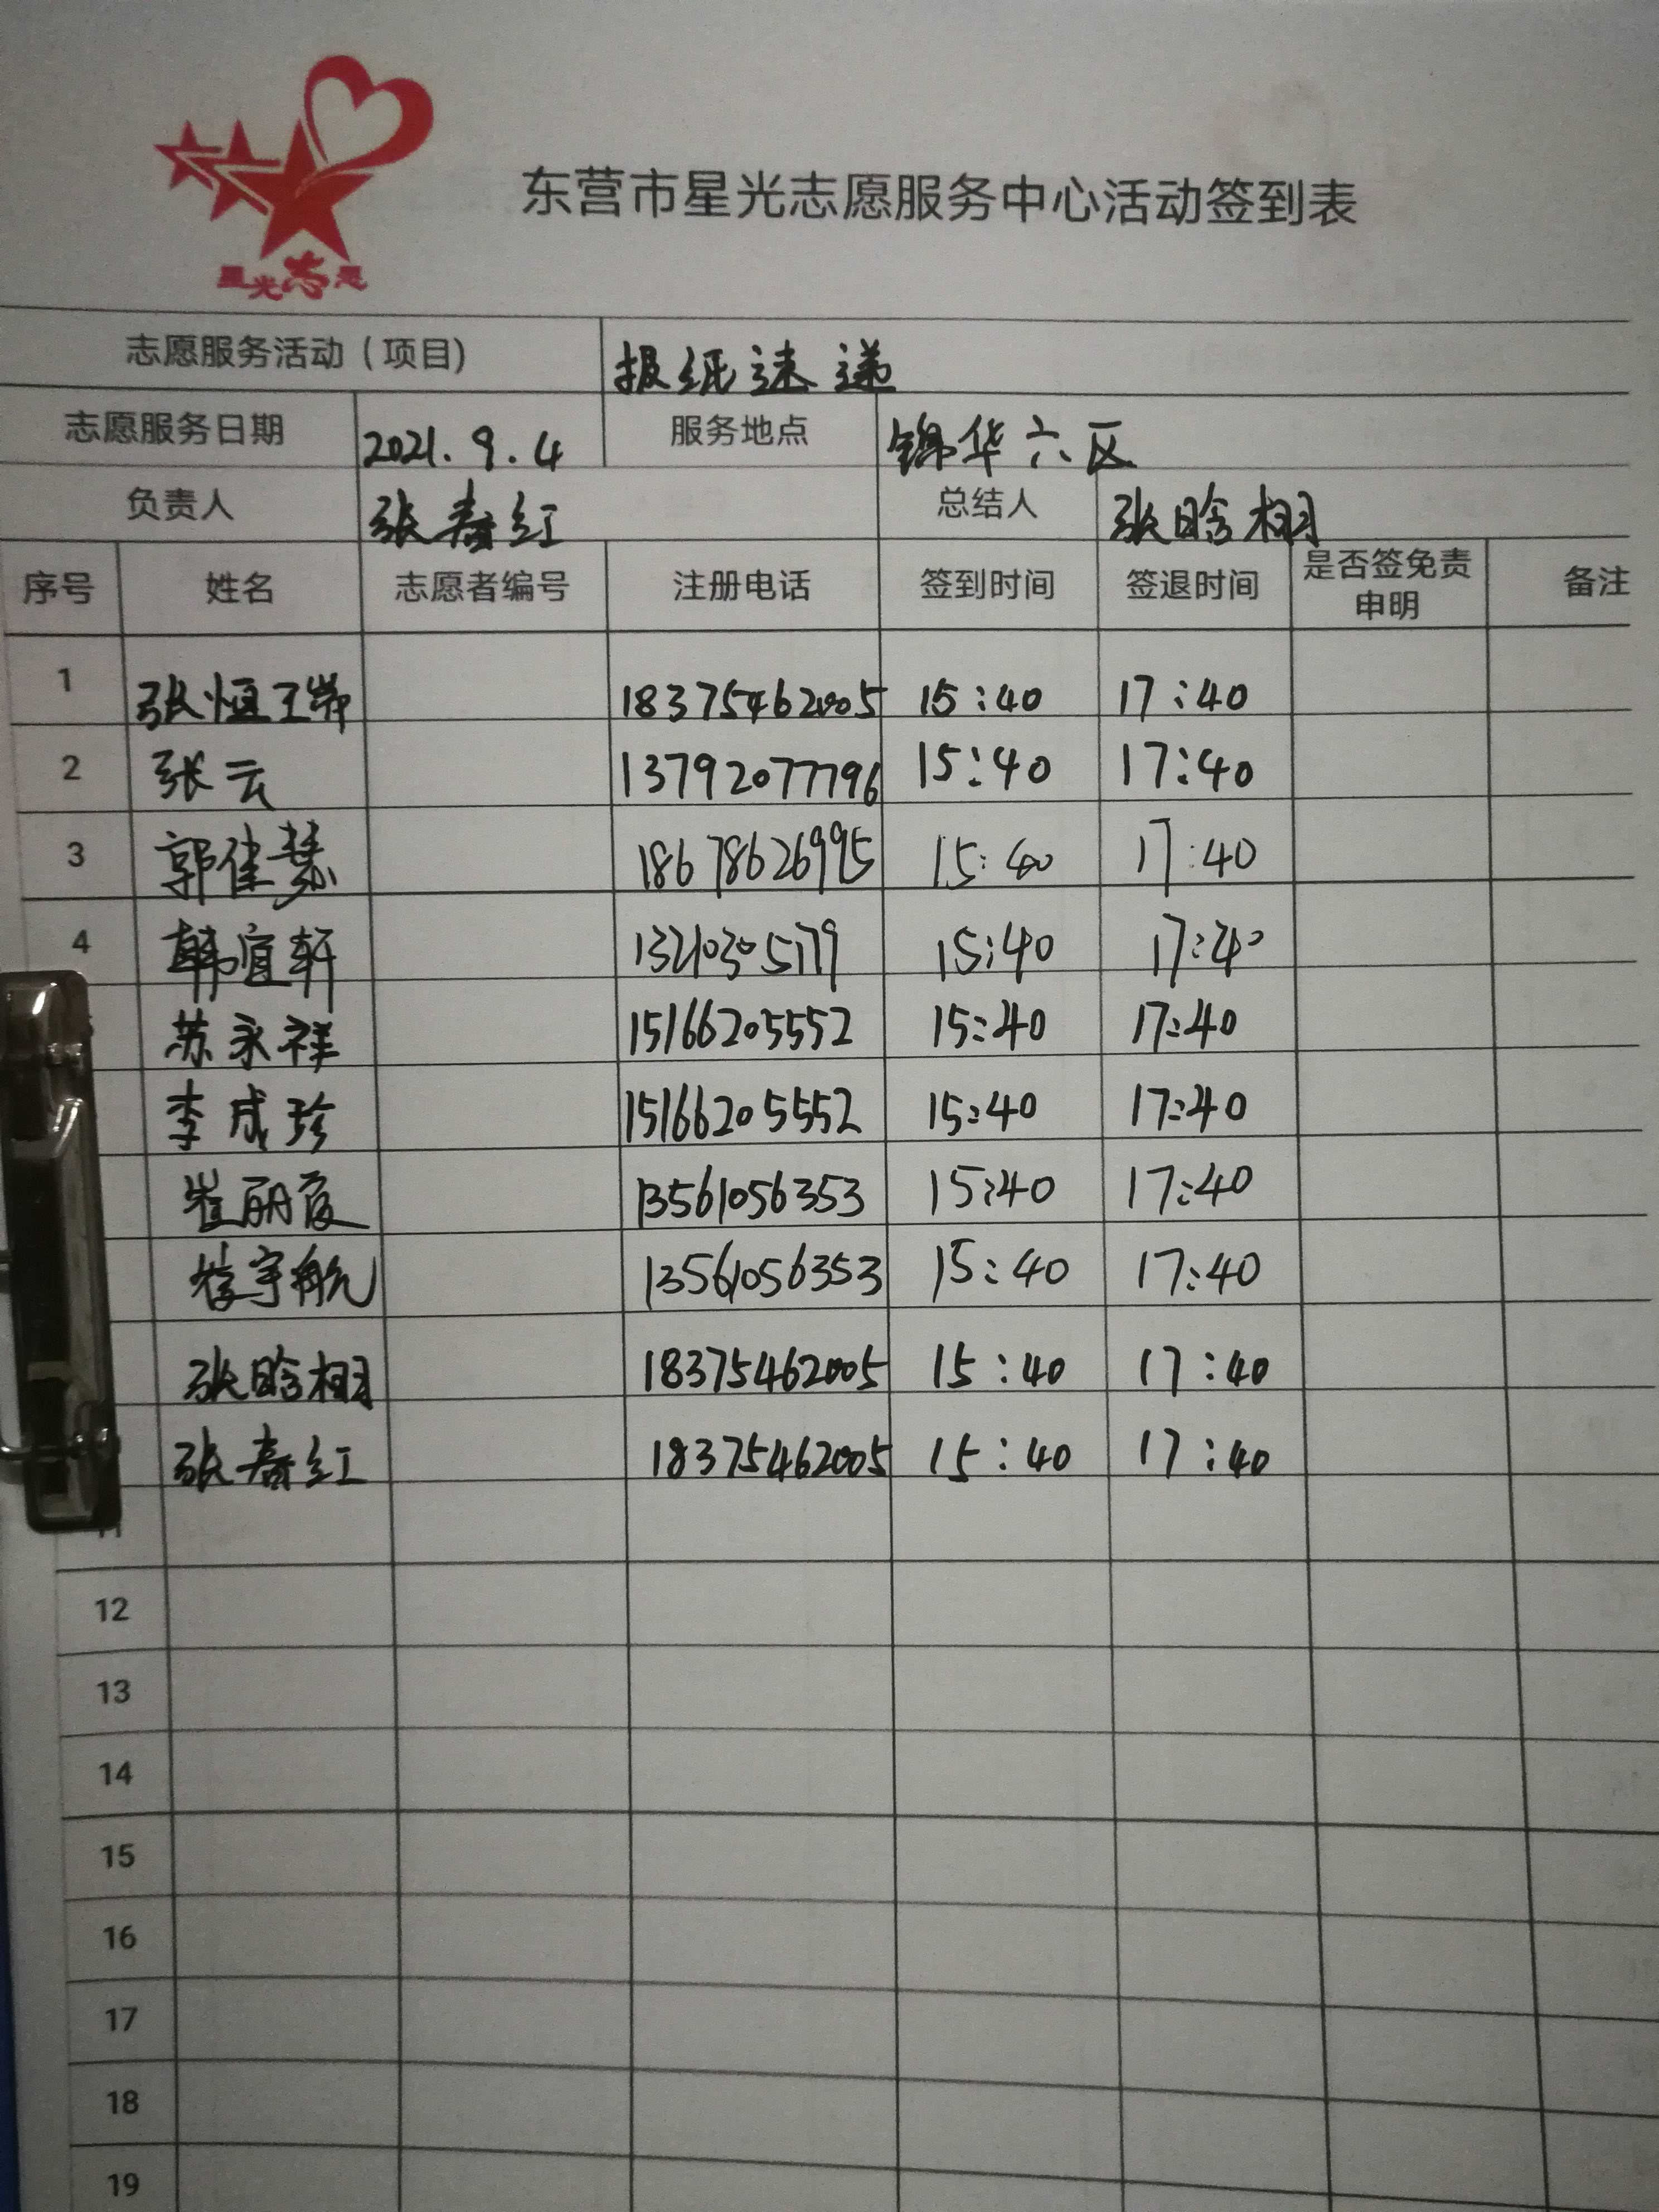 星光志愿
东营市星光志愿服务中心活动签到表
志愿服务活动（项目） 报纸速递
志愿服务日期 2021.9.4 服务地点 锦华六区
负责人 张春红 总结人 张晗栩
序号 姓名 志愿者编号 注册电话 签到时间 签退时间 是否签免责申明 备注
1 张恒 18375462005 15:40 17:40
2 张云 13792077796 15:40 17:40
3 郭佳慧 18678626995 15:40 17:40
4 韩宜轩 13210305179 15:40 17:40
苏永祥 15166205552 15:40 17:40
李成珍 15166205552 15:40 17:40
崔丽霞 13561056353 15:40 17:40
宇航 13561056353 15:40 17:40
张晗栩 18375462005 15:40 17:40
张春红 18375462005 15:40 17:40
11
12
13
14
15
16
17
18
19